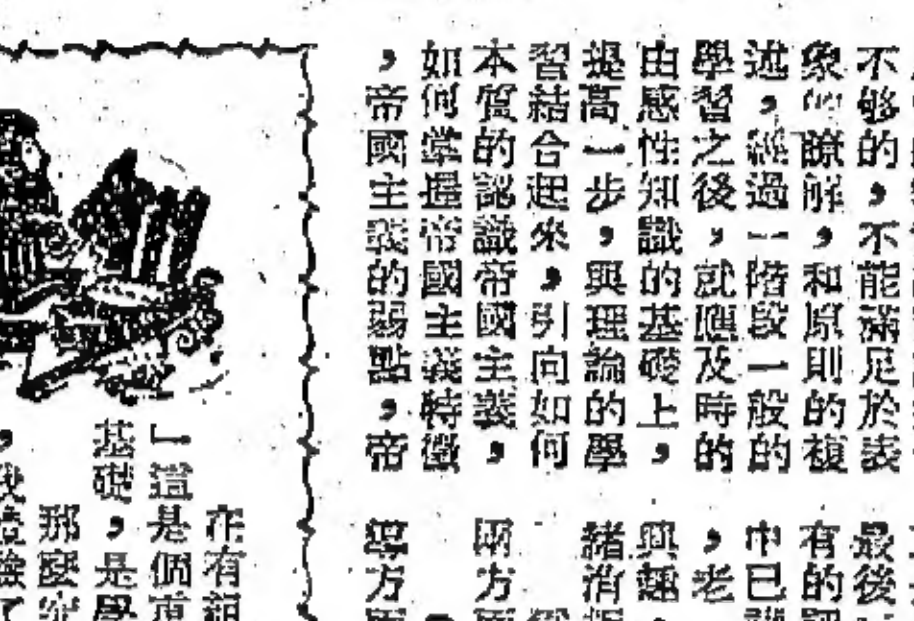 不够的,不能滿足於表
象的瞭解,和原則的複
述。經過一階段一般的
學習之後,就應及時的
由感性知識的基礎上,
提高一步,與理論的學
習結合起來,引向如何
本質的認識帝國主義,
如何掌握帝國主義特徵
,帝國主義的弱點,帝
最後
有的
中已
,老
興趣
諸消
兩方
導方
在有
「這是個重
基礎,是學
那麼
,我